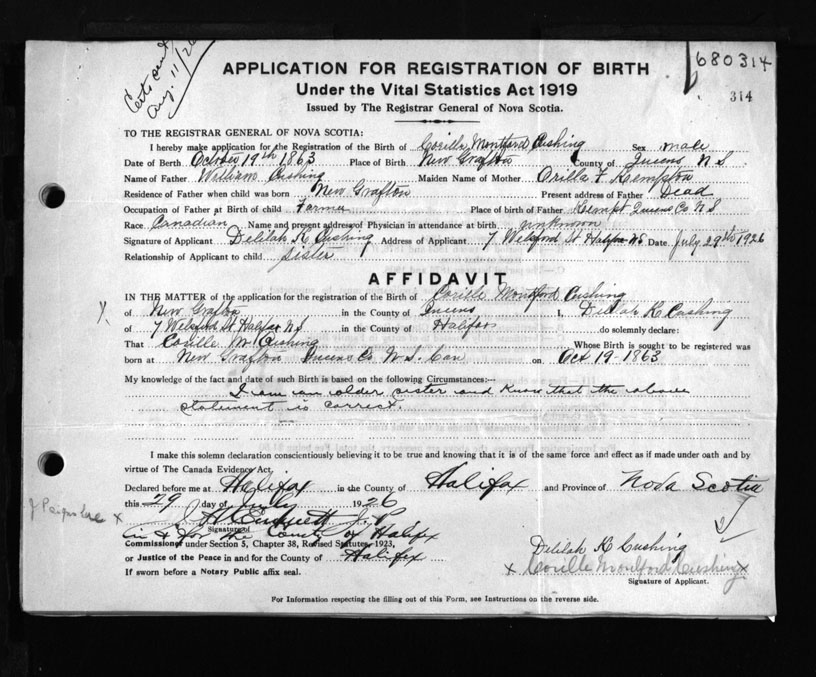 Certs sent
Aug. 11/26
680314
314
APPLICATION FOR REGISTRATION OF BIRTH
Under the Vital Statistics Act 1919
Issued by The Registrar General of Nova Scotia.
TO THE REGISTRAR GENERAL OF NOVA SCOTIA:
I hereby make application for the Registration of the Birth of Corille Montford Cushing Sex male
Date of Birth October 19th 1863 Place of Birth New Grafton County of Queens N S
Name of Father William Cushing Maiden Name of Mother Orilla F Kempton
Residence of Father when child was born New Grafton Present address of Father Dead
Occupation of Father at Birth of child Farmer Place of birth of Father Kempt Queens Co N S
Race Canadian Name and present address of Physician in attendance at birth unknown
Signature of Applicant Delilah K Cushing Address of Applicant 7 Welsford St Halifax N S Date July 29th 1926
Relationship of Applicant to child Sister
AFFIDAVIT
X IN THE MATTER of the application for the registration of the Birth of Corille Montford Cushing
of New Grafton in the County of Queens I, Delilah K Cushing
of 7 Welsford St Halifax N S in the County of Halifax do solemnly declare:
That Corille M Cushing Whose Birth is sought to be registered was
born at New Grafton Queens Co N. S. Can on Oct 19-1863
My knowledge of the fact and date of such Birth is based on the following Circumstances:—
I am an older sister and know that the above
statement is correct.
I make this solemn declaration conscientiously believing it to be true and knowing that it is of the same force and effect as if made under oath and by
virtue of The Canada Evidence Act.
Declared before me at Halifax in the County of Halifax and Province of Nova Scotia
this 29 day of July 1926
J. P.
Signature of
in & for the County of Halifax
Commissioner under Section 5, Chapter 38, Revised Statutes, 1923,
or Justice of the Peace in and for the County of Halifax
If sworn before a Notary Public affix seal.
Delilah K Cushing
X Corille Montford Cushing X
Signature of Applicant.
For Information respecting the filling out of this Form, see Instructions on the reverse side.